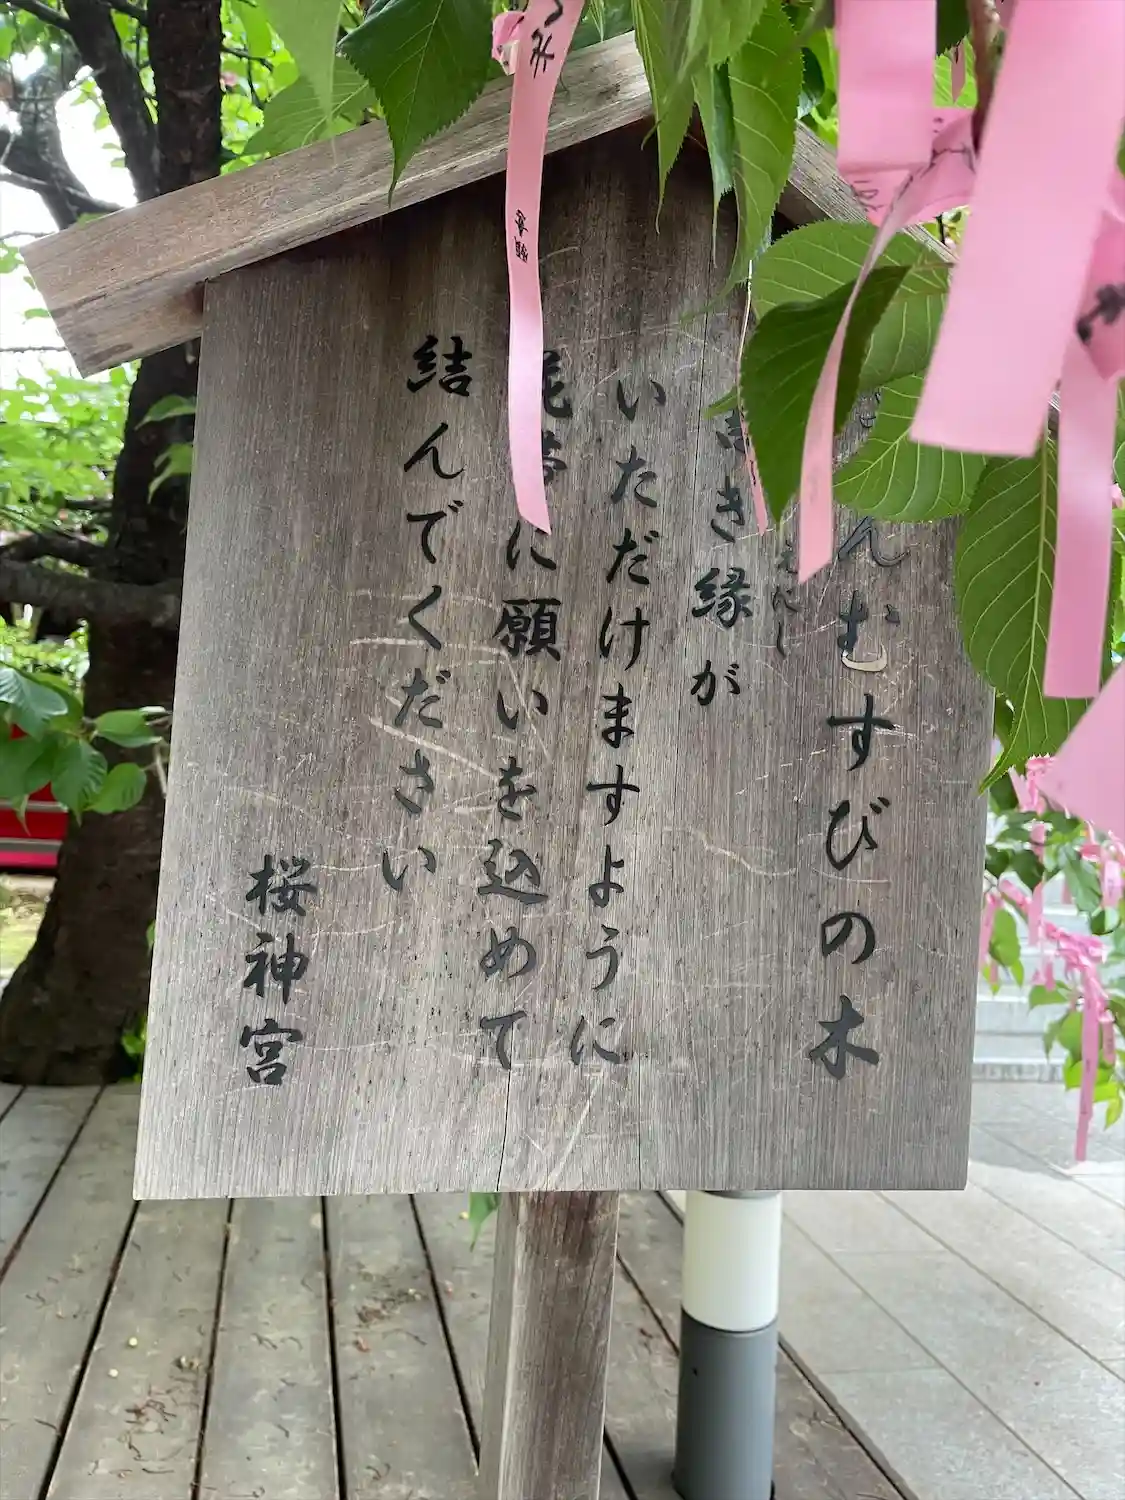 んむすびの木
き縁が
えにし
いただけますように
花帯に願いを込めて
結んでください
桜神宮